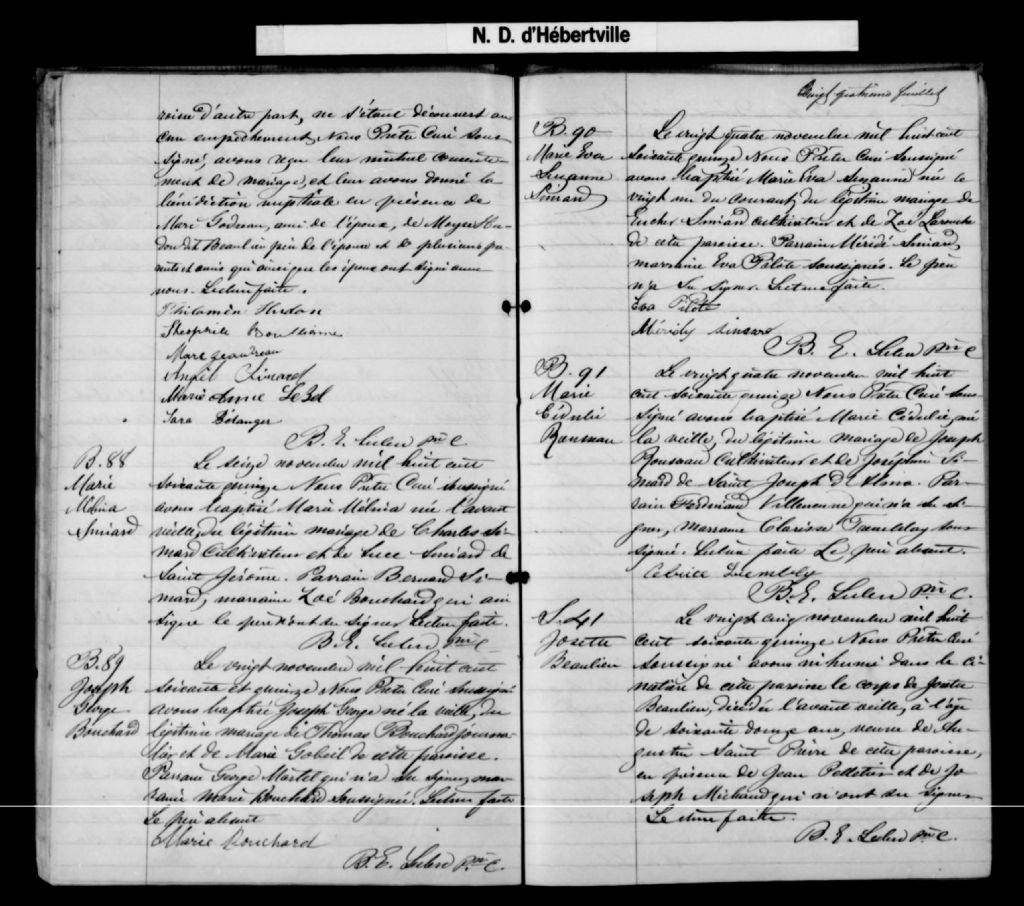 N. D. d'Hébertville
roisse d'autre part, ne s'étant découvert au
cun empêchement, Nous Prêtre Curé sous-
signé, avons reçu leur mutuel consente-
ment de mariage, et leur avons donné la
bénédiction nuptiale en présence de
Marc Godreau, ami de l'époux, de Moyse Hu-
don dit Beaulieu père de l'épouse et de plusieurs pa-
rents et amis qui ainsi que les époux ont signé avec
nous. Lecture faite.
Philomène Hudon
Théophile
Marc
Simard
Marie Anne LeBel
Sara Bélanger
B. E. Leclerc Ptre C
B. 88
Marie
Mélina
Simard
Le seize novembre mil huit cent
soixante quinze Nous Prêtre Curé soussigné
avons baptisé Marie Mélina née l'avant
veille, du légitime mariage de Charles Si-
mard Cultivateur et de Luce Simard de
Saint Jérôme. Parrain Bernard Si-
mard, marraine Zoé Bouchard qui ainsi
que le père n'ont su signer. Lecture faite.
B. E. Leclerc Ptre C
B. 89
Joseph
George
Bouchard
Le vingt novembre mil huit cent
soixante et quinze Nous Prêtre Curé soussigné
avons baptisé Joseph George né la veille, du
légitime mariage de Thomas Bouchard journa-
lier et de Marie Gobeil de cette paroisse.
Parrain George Martel qui n'a su signer, mar-
raine Marie Bouchard soussignée. Lecture faite
Le père absent
Marie Bouchard
B. E. Leclerc Ptre C.
Vingt quatrième feuillet
B. 90
Marie Eva
Suzanne
Simard
Le vingt quatre novembre mil huit cent
soixante quinze Nous Prêtre Curé soussigné
avons baptisé Marie Eva Suzanne née le
vingt un du courant, du légitime mariage de
Eucher Simard cultivateur et de Zoé Larouche
de cette paroisse. Parrain Méridé Simard,
marraine Eva Pilote soussignés. Le père
n'a su signer. Lecture faite.
Eva Pilote
Méridy simard
B. E. Leclerc Ptre C
B. 91
Marie
Cédulie
Rousseau
Le vingt quatre novembre mil huit
cent soixante quinze Nous Prêtre Curé sous-
signé avons baptisé Marie Cédulie, née
la veille, du légitime mariage de Joseph
Rousseau Cultivateur et de Joséphine Si-
mard de Saint Joseph d'Alma. Par-
rain Ferdinand Villeneuve qui n'a su si-
gner, Marraine Clarisse Tremblay sous-
signée. Lecture faite Le père absent.
Tremblay
B. E. Leclerc Ptre C.
S. 41
Josette
Beaulieu
Le vingt cinq novembre mil huit
cent soixante quinze Nous Prêtre Curé
soussigné avons inhumé dans le ci-
metière de cette paroisse le corps de Josette
Beaulieu, décédée l'avant veille, à l'âge
de soixante douze ans, veuve de Au-
gustin Saint Pierre de cette paroisse,
en présence de Jean Pelletier et de Jo-
seph Michaud qui n'ont su signer
Lecture faite.
B. E. Leclerc Ptre C.